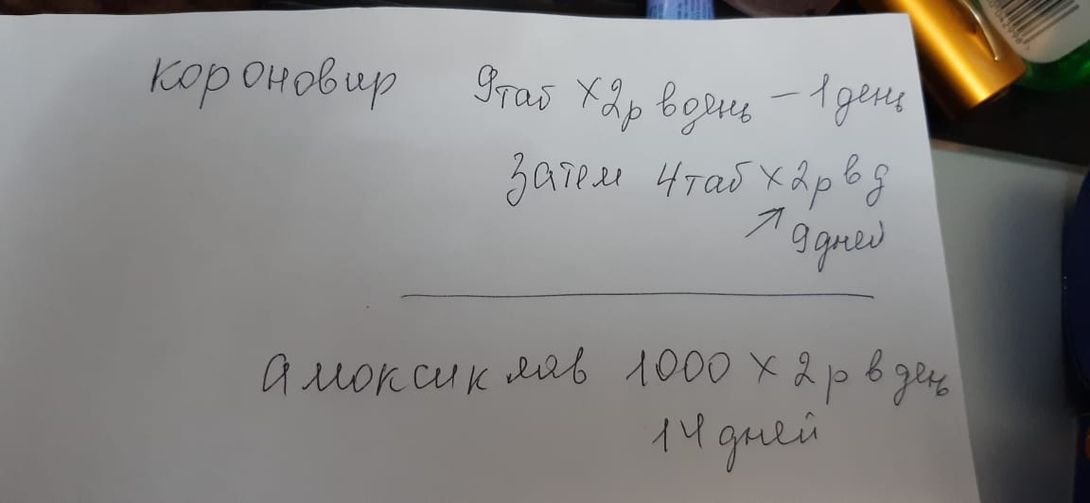 короновир 9таб х2р вдень – 1 день
Затем 4таб х2р в д
↗ 9дней
Амоксиклав 1000 х 2р в день
14 дней